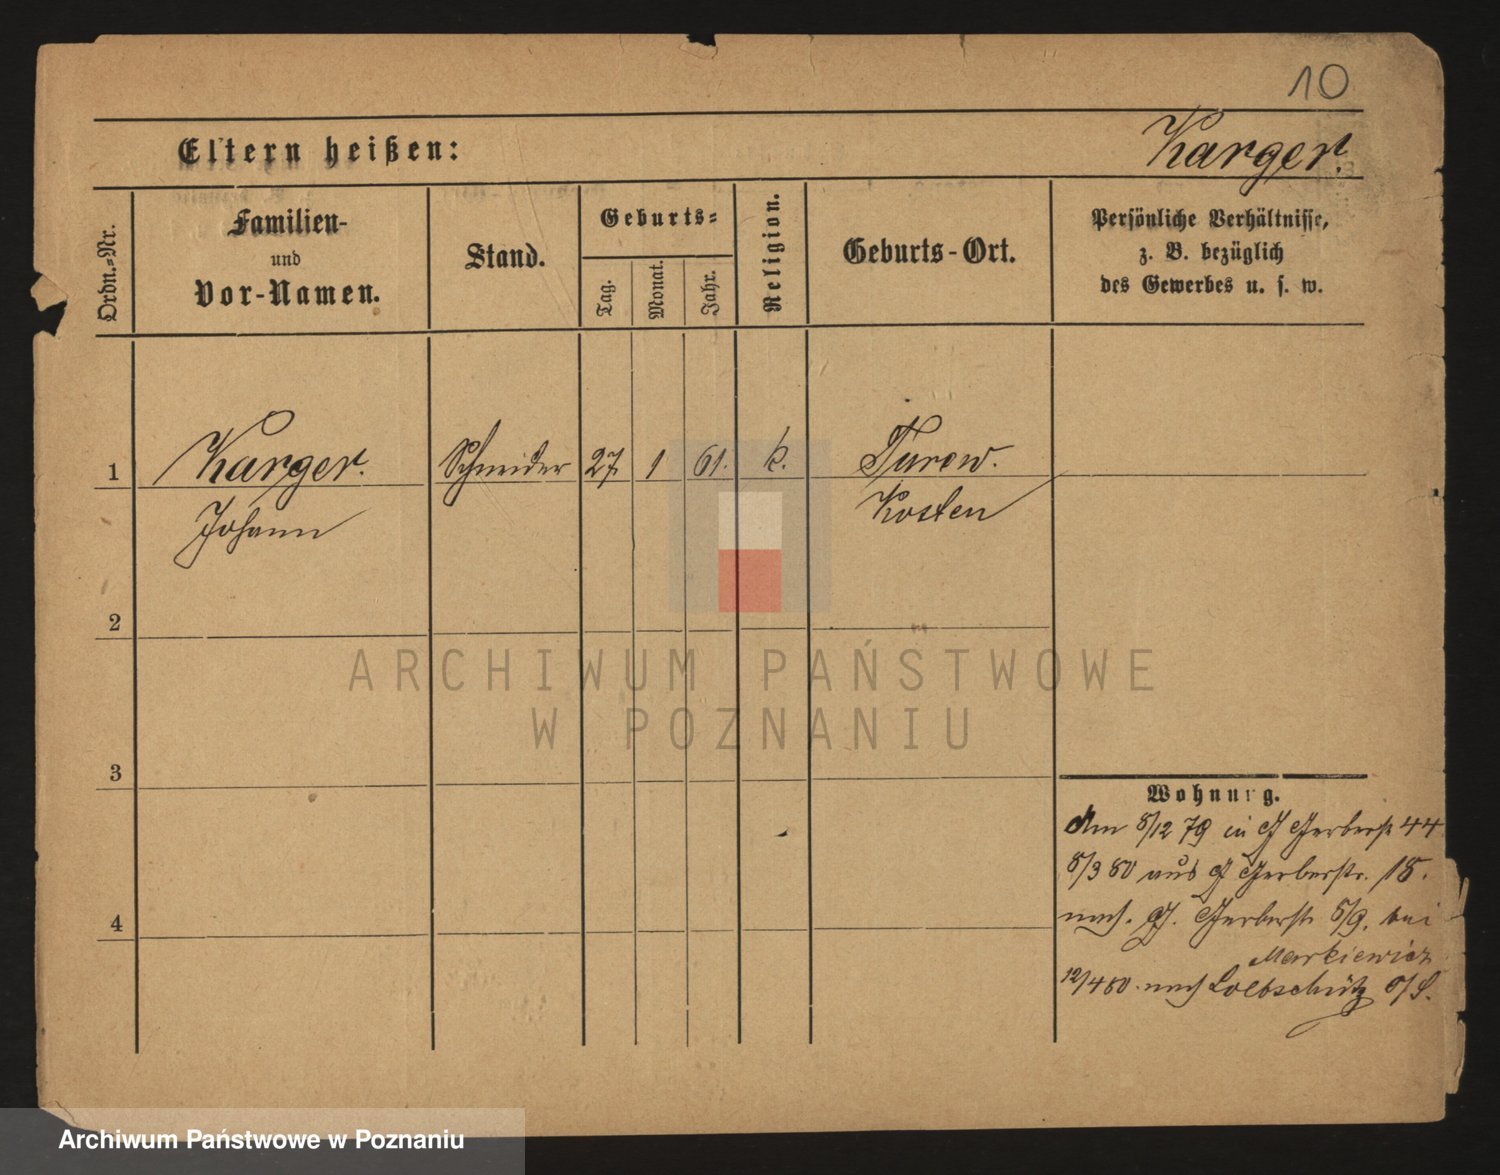 10
Eltern heißen:
Karger.
Ordn.-Nr.
Familien-
und
Vor-Namen.
Stand.
Geburts-
Tag.
Monat.
Jahr.
Religion.
Geburts-Ort.
Persönliche Verhältnisse,
z. B. bezüglich
des Gewerbes u. s. w.
1
Karger.
Schneider
27
1
61.
k.
Turew.
Johann
Kosten
2
3
4
Wohnung.
Am 8/12 79 in Gerberstr 44
8/3 80 aus Gerberstr. 18.
nach. Gerberstr 8/9. bei
Markiewicz
12/4 80. nach Loebschütz O/S.
ARCHIWUM PAŃSTWOWE
W POZNANIU
Archiwum Państwowe w Poznaniu